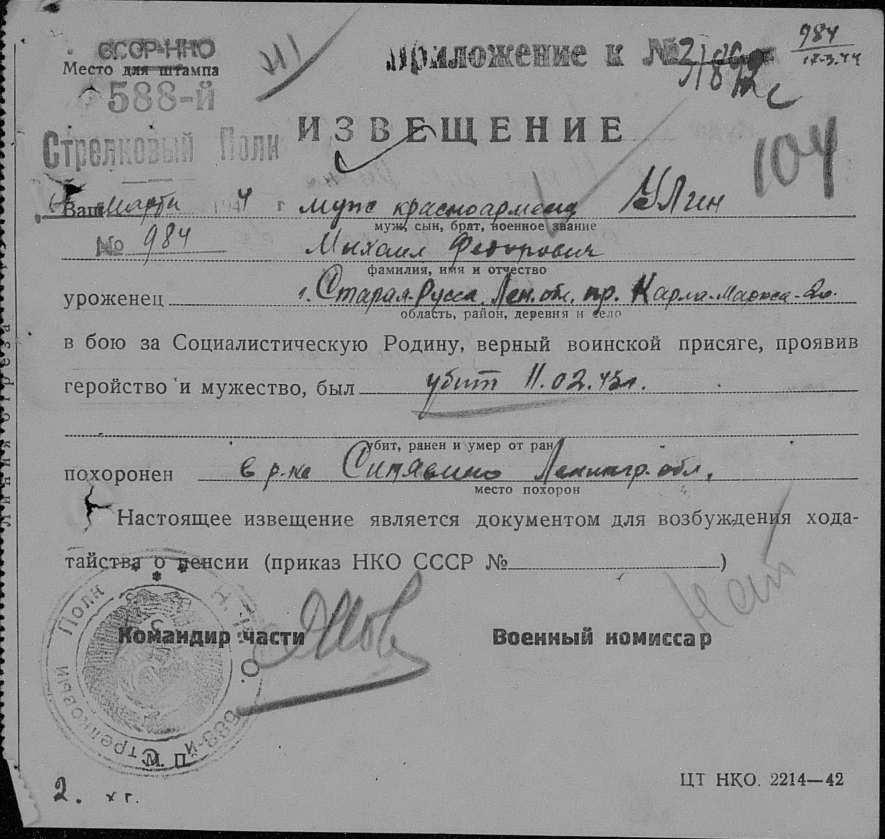 СССР-НКО
Место для штампа
588-й
Стрелковый Полк
Приложение к №
984
12.3.44
ИЗВЕЩЕНИЕ
104
Ваш марта 194 4 г муж красноармеец Улин
муж, сын, брат, военное звание
№ 984 Михаил Федорович
фамилия, имя и отчество
уроженец г. Старая-Русса, Лен. обл. пр. Карла-Маркса
область, район, деревня и село
в бою за Социалистическую Родину, верный воинской присяге, проявив
геройство и мужество, был убит 11.02.43г.
убит, ранен и умер от ран
похоронен в р-не Синявино Ленингр. обл.
место похорон
Настоящее извещение является документом для возбуждения хода-
тайства о пенсии (приказ НКО СССР №)
Командир части Военный комиссар
Н.К.О. 588-й Стрелковый Полк
М. П.
ЦТ НКО. 2214—42
2.
Линия отреза